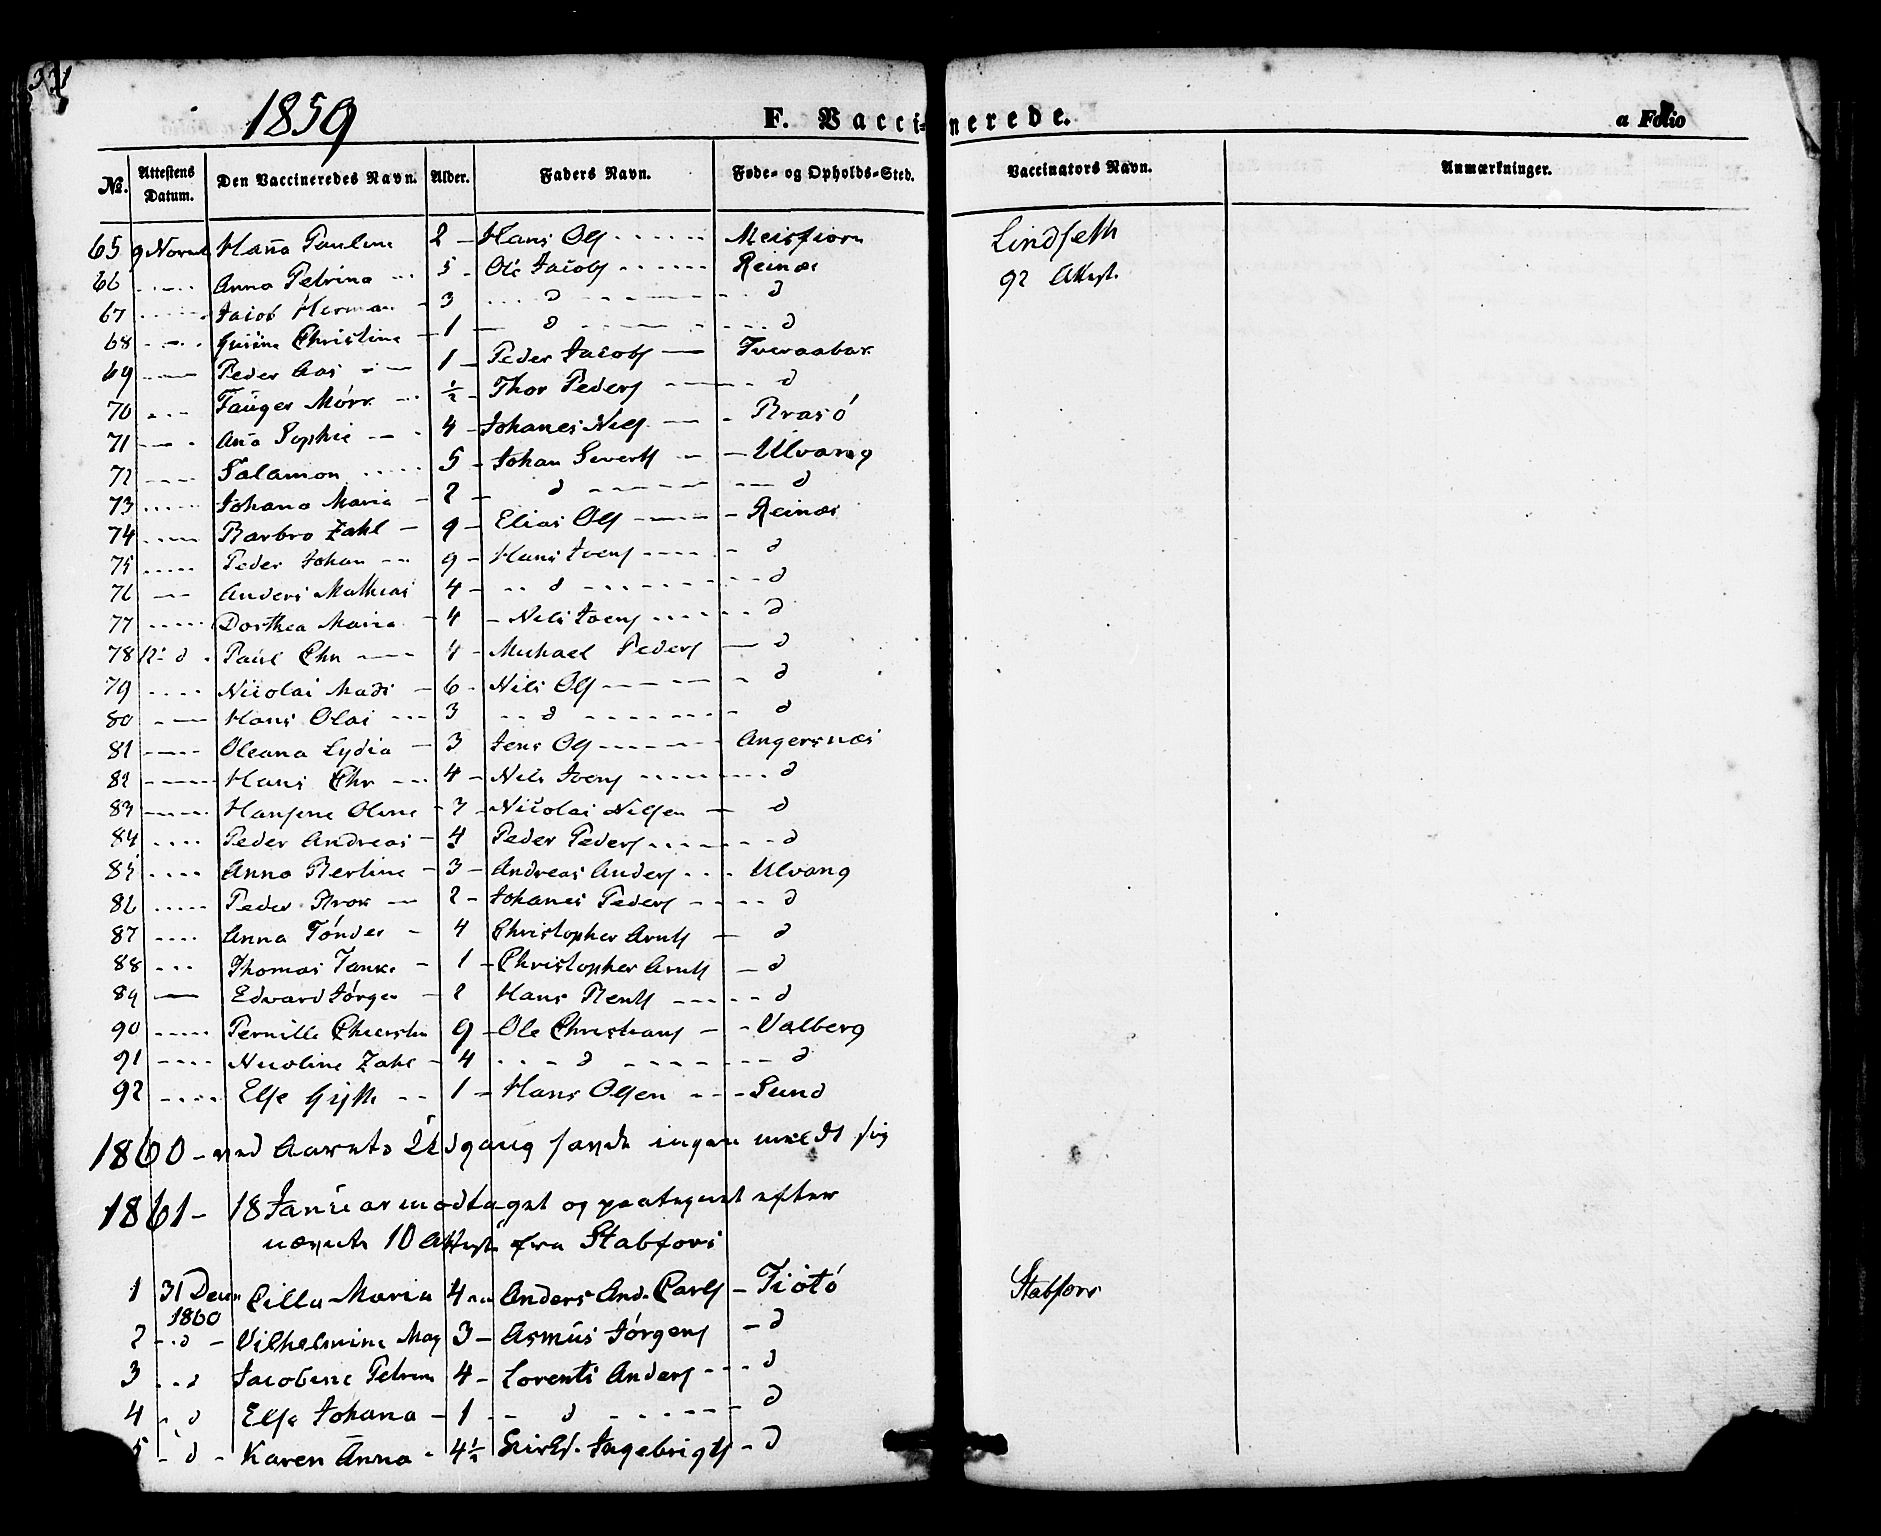 331
1859 F. Vaccinerede. a Folio
No. Attestens Datum. Den Vaccineredes Navn. Alder. Faders Navn. Føde- og Opholds-Sted. Vaccinators Navn. Anmærkninger.
65 9 Novemb Hana Pauline 2 Hans Ols Meisfiorn Lindseth
66 Anna Petrina 5 Ole Jacobs Reinæs 92 Attest.
67 Jacob Herman 3 d d
68 Christine 1 d d
69 Peder Aas 1 Peder Jacobs Tveraabak
70 Mörk ½ Thor Peders d
71 Ana Sophie 4 Johanes Niels Brasö
72 Salamon 5 Johan Siverts Ulvang
73 Johana Maria 2 d d
74 Barbro Zahl 9 Elias Ols Reinæs
75 Peder Johan 9 Hans Ivers d
76 Anders Mathias 4 d d
77 Dorthea Maria 4 Nils Ivers d
78 12 d Paul Chr 4 Michael Peders d
79 Nicolai Mads 6 Nils Ols d
80 Hans Olai 3 d d
81 Oleana Lydia 3 Jens Ols Angersnæs
82 Hans Chr 4 Nils Ivers d
83 Hansine Oline 7 Nicolai Nilsen d
84 Peder Andreas 4 Peder Peders d
85 Anna Berline 3 Andreas Anders Ulvang
86 Peder Brok 2 Johanes Peders d
87 Anna Tönder 4 Christopher Arnts d
88 Thomas Tanke 1 Christopher Arnts d
89 Edvard Jörgen 2 Hans Bents d
90 Pernille 9 Ole Christians Valberg
91 Nicoline Zahl 4 d d
92 Else Gjyth 1 Hans Olsen Sund
1860 - ved Aarets Udgang havde ingen meldt sig
1861 - 18 Januar modtaget og paategnet efter
nævnte 10 Attester fra Stabfors
1 31 Decemb 1860 Cilla Maria 4 Anders And. Carls Tiötö Stabfors
2 d Vilhelmine Mag 3 Asmus Jörgens d
3 d Jacobine Petrine 4 Lorents Anders d
4 d Else Johana 1 d d
5 d Karen Anna 4½ Ingebrigts d